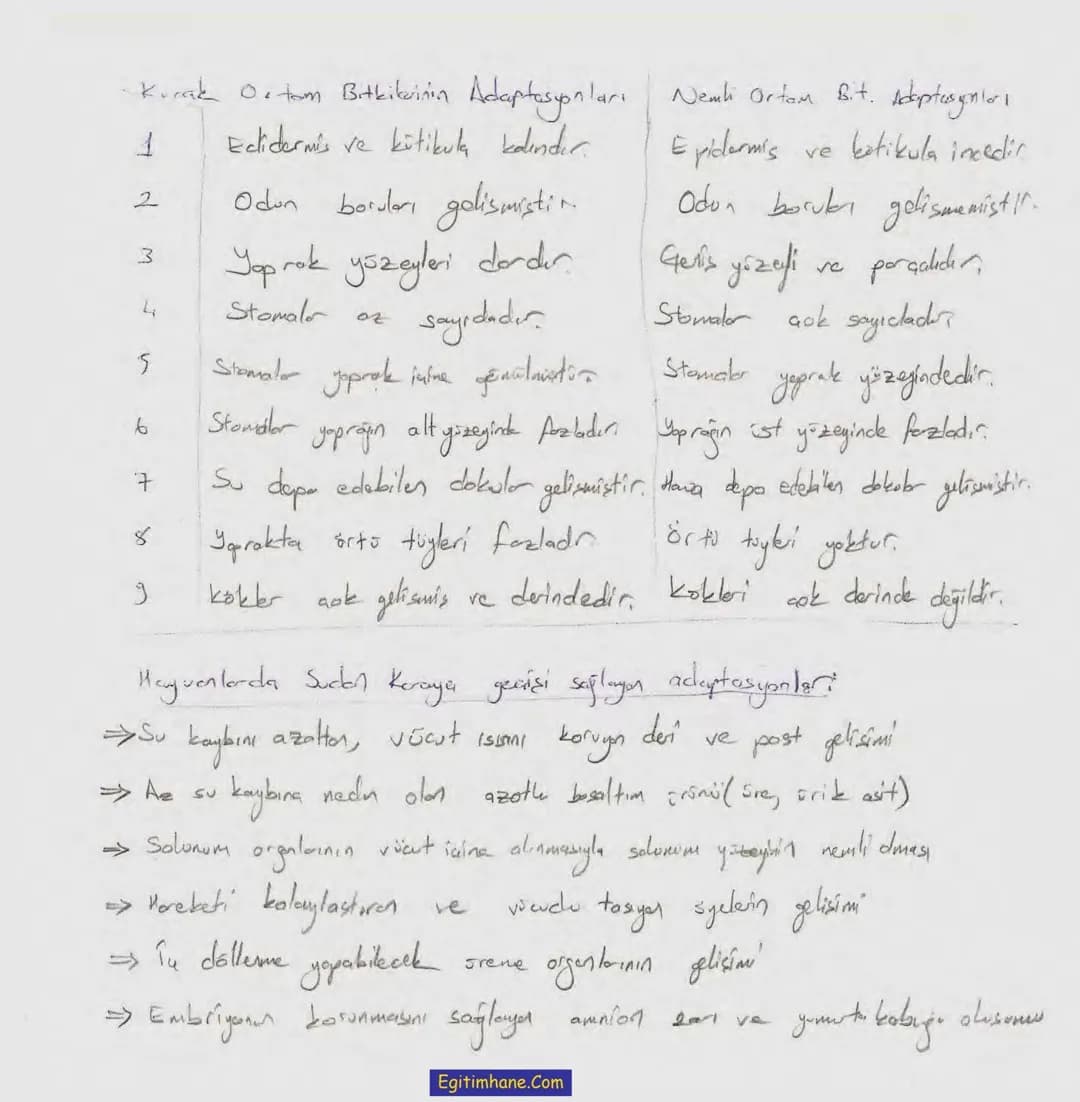 Kurak Ortam Bitkilerinin Adaptasyonları | Nemli Ortam Bit. Adaptasyonları
1 Edidermis ve kütikula kalındır. | Epidermis ve kütikula incedir.
2 Odun boruları gelişmiştir. | Odun boruları gelişmemiştir.
3 Yaprak yüzeyleri dardır. | Geniş yüzeyli ve parçalıdır.
4 Stomalar az sayıdadır. | Stomalar çok sayıdadır.
5 Stomalar yaprak içine gömülmüştür. | Stomalar yaprak yüzeyindedir.
6 Stomalar yaprağın alt yüzeyinde fazladır. | Yaprağın üst yüzeyinde fazladır.
7 Su depo edebilen dokular gelişmiştir. | Hava depo edebilen dokular gelişmiştir.
8 Yaprakta örtü tüyleri fazladır. | Örtü tüyleri yoktur.
9 Kökler çok gelişmiş ve derindedir. | Kökleri çok derinde değildir.
Hayvanlarda Sudan Karaya geçişi sağlayan adaptasyonlar:
⇒ Su kaybını azaltan, vücut ısısını koruyan deri ve post gelişimi
⇒ Az su kaybına neden olan azotlu boşaltım ürünü (üre, ürik asit)
⇒ Solunum organlarının vücut içine alınmasıyla solunum yüzeyinin nemli olması
⇒ Hareketi kolaylaştıran ve vücudu taşıyan üyelerin gelişimi
⇒ İç döllenme yapabilecek üreme organlarının gelişimi
⇒ Embriyonun korunmasını sağlayan amnion zarı ve yumurta kabuğu oluşumu
Egitimhane.Com